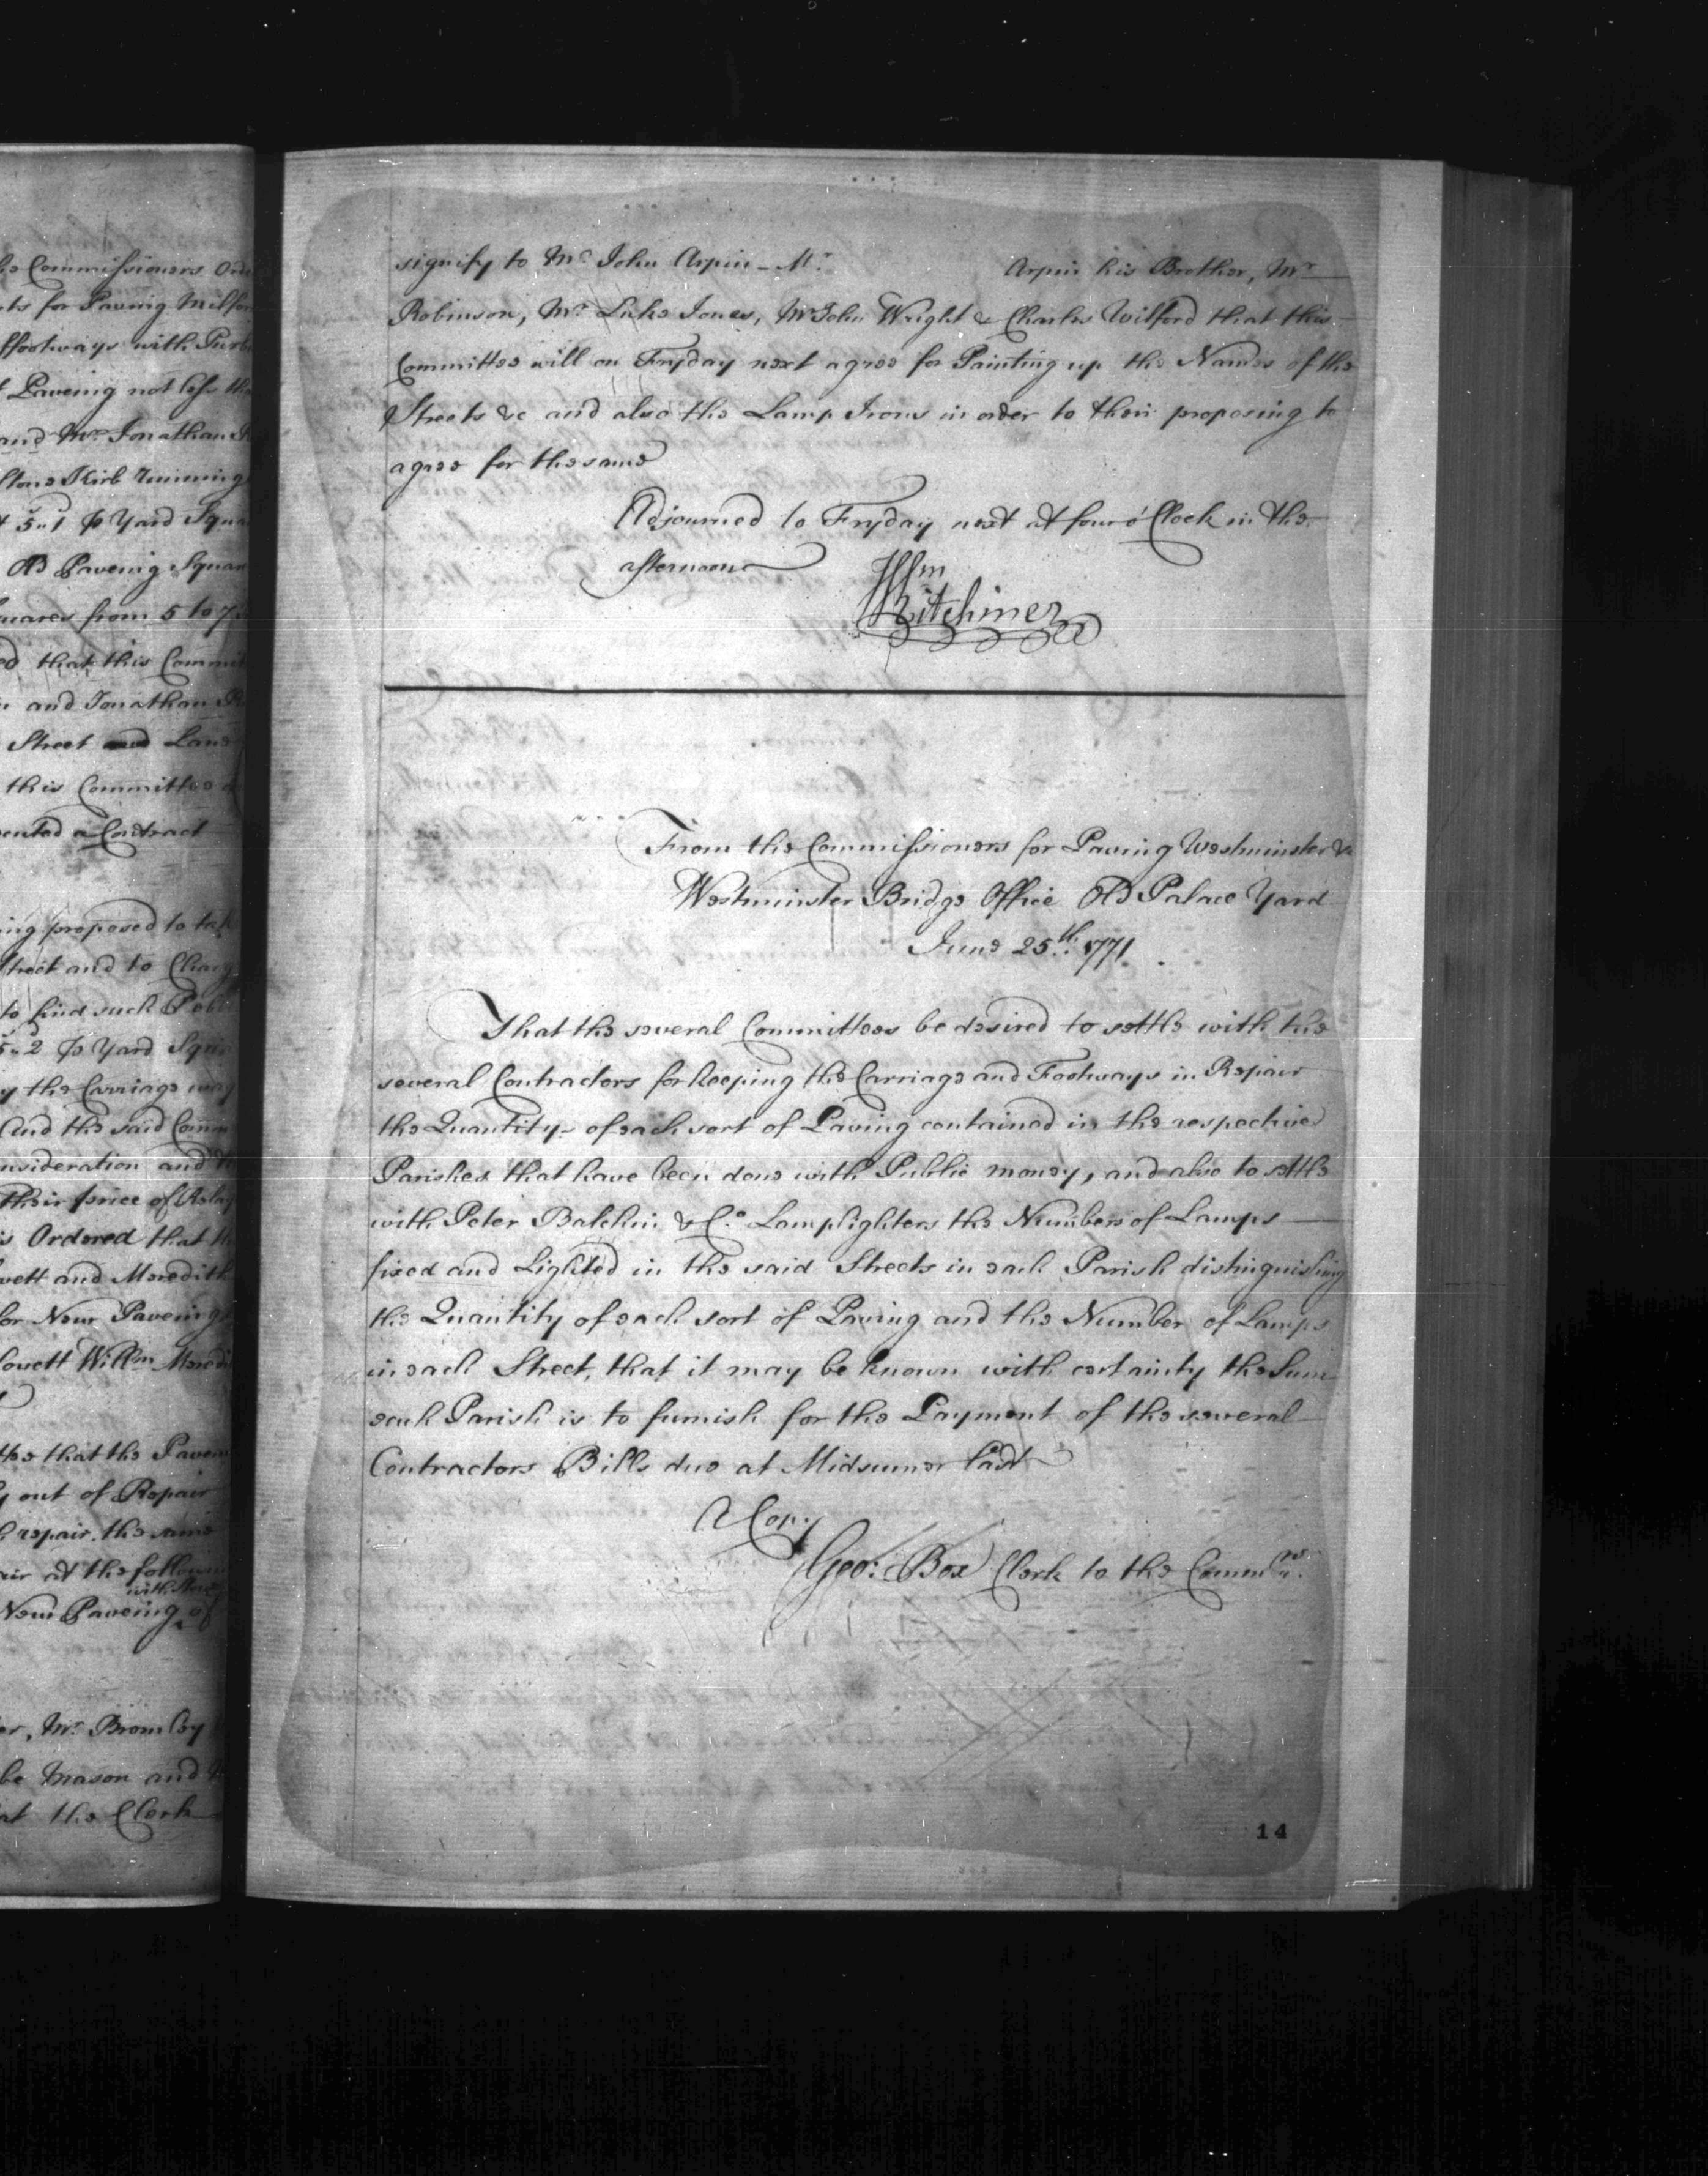 he Commissioners Orde
ts for Paving Milfor
ffootways with Purb
t Paveing not less tha
and Mr. Jonathan
stone Kirb running
t 5"1 ⅌ Yard Squa
Old Paveing Squar
uares from 5 to 7
ed that this Commit
and Jonathan
Street and Lane
this Committee
cuted a Contract
ing proposed to tak
treet and to Charg
to find such Pebb
5"2 ⅌ Yard Squr
y the Carriage way
And the said Comm
nsideration and
their price of Relay
is Ordered that th
vett and Meredith
for New Paveing
lovett Willm. Meredi
ttee that the Pavem
y out of Repair
repair the same
air at the follow
with Stone
New Paveing of
er, Mr. Bromley
be Mason and
at the Clerk
signify to Mr. John Arpin - Mr. Arpin his Brother, Mr.
Robinson, Mr. Luke Jones, Mr John Wright & Charles Wilford that this
Committee will on Fryday next agree for Painting up the Names of the
Streets &c and also the Lamp Irons in order to their proposing to
agree for the same
Adjourned to Fryday next at four o'Clock in the
afternoon
Wm
Kitchiner
From the Commissioners for Paving Westminster &c
Westminster Bridge Office Old Palace Yard
June 25th. 1771.
That the several Committees be desired to settle with the
several Contractors for keeping the Carriage and Footways in Repair
the Quantity of each sort of Paving contained in the respective
Parishes that have been done with Public money, and also to settle
with Peter Balchin & Co. Lamplighters the Numbers of Lamps
fixed and Lighted in the said Streets in each Parish distinguishing
the Quantity of each sort of Paving and the Number of Lamps
in each Street, that it may be known with certainty the Sum
each Parish is to furnish for the Payment of the several
Contractors Bills due at Midsumer last
A Copy
Geo: Box Clerk to the Commrs.
14